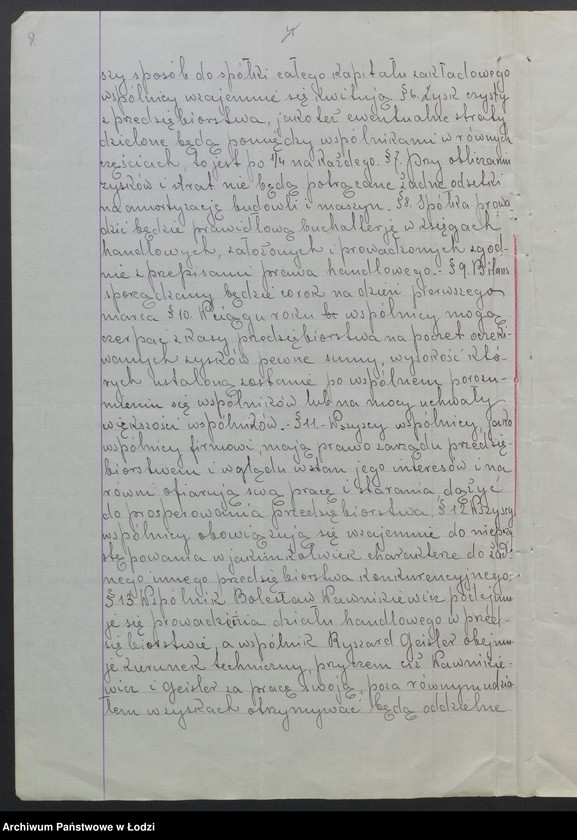 8
4
szy sposób do spółki całego kapitału zakładowego
wspólnicy wzajemnie się kwitują. § 6. Zysk czysty
z przedsiębiorstwa, jako też ewentualne straty
dzielone będą pomiędzy wspólnikami w równych
częściach, to jest po 1/4 na każdego. § 7. Przy obliczaniu
zysków i strat nie będą potrącane żadne odsetki
na amortyzację budowli i maszyn. § 8. Spółka prowa
dzić będzie prawidłową buchalterję w księgach
handlowych, założonych i prowadzonych zgod-
nie z przepisami prawa handlowego.- § 9. Bilans
sporządzany będzie corok na dzień pierwszego
marca § 10. W ciągu roku wspólnicy mogą
czerpać z kasy przedsiębiorstwa na poczet oczeki-
wanych zysków pewne sumy, wysokość któ-
rych ustaloną zostanie po wspólnem porozu-
mieniu się wspólników lub na mocy uchwały
większości wspólników.- § 11.- Wszyscy wspólnicy, jako
wspólnicy firmowi, mają prawo zarządu przedsię-
biorstwem i wglądu w stan jego interesów i na
równi ofiarują swą pracę i starania, dążyć
do prosperowania przedsiębiorstwa. § 12. Wszyscy
wspólnicy obowiązują się wzajemnie do nieprzy
stępowania w jakimkolwiek charakterze do żad-
nego innego przedsiębiorstwa konkurencyjnego.
§ 13 Wspólnik Bolesław Wawnikiewicz podejmu
je się prowadzenia działu handlowego w przed-
siębiorstwie, a wspólnik Ryszard Geisler obejmu
je kierunek techniczny, przyczem ciż Wawnikie-
wicz i Geisler za pracę swoją, poza równym udzia-
łem w zyskach otrzymywać będą oddzielne
Archiwum Państwowe w Łodzi